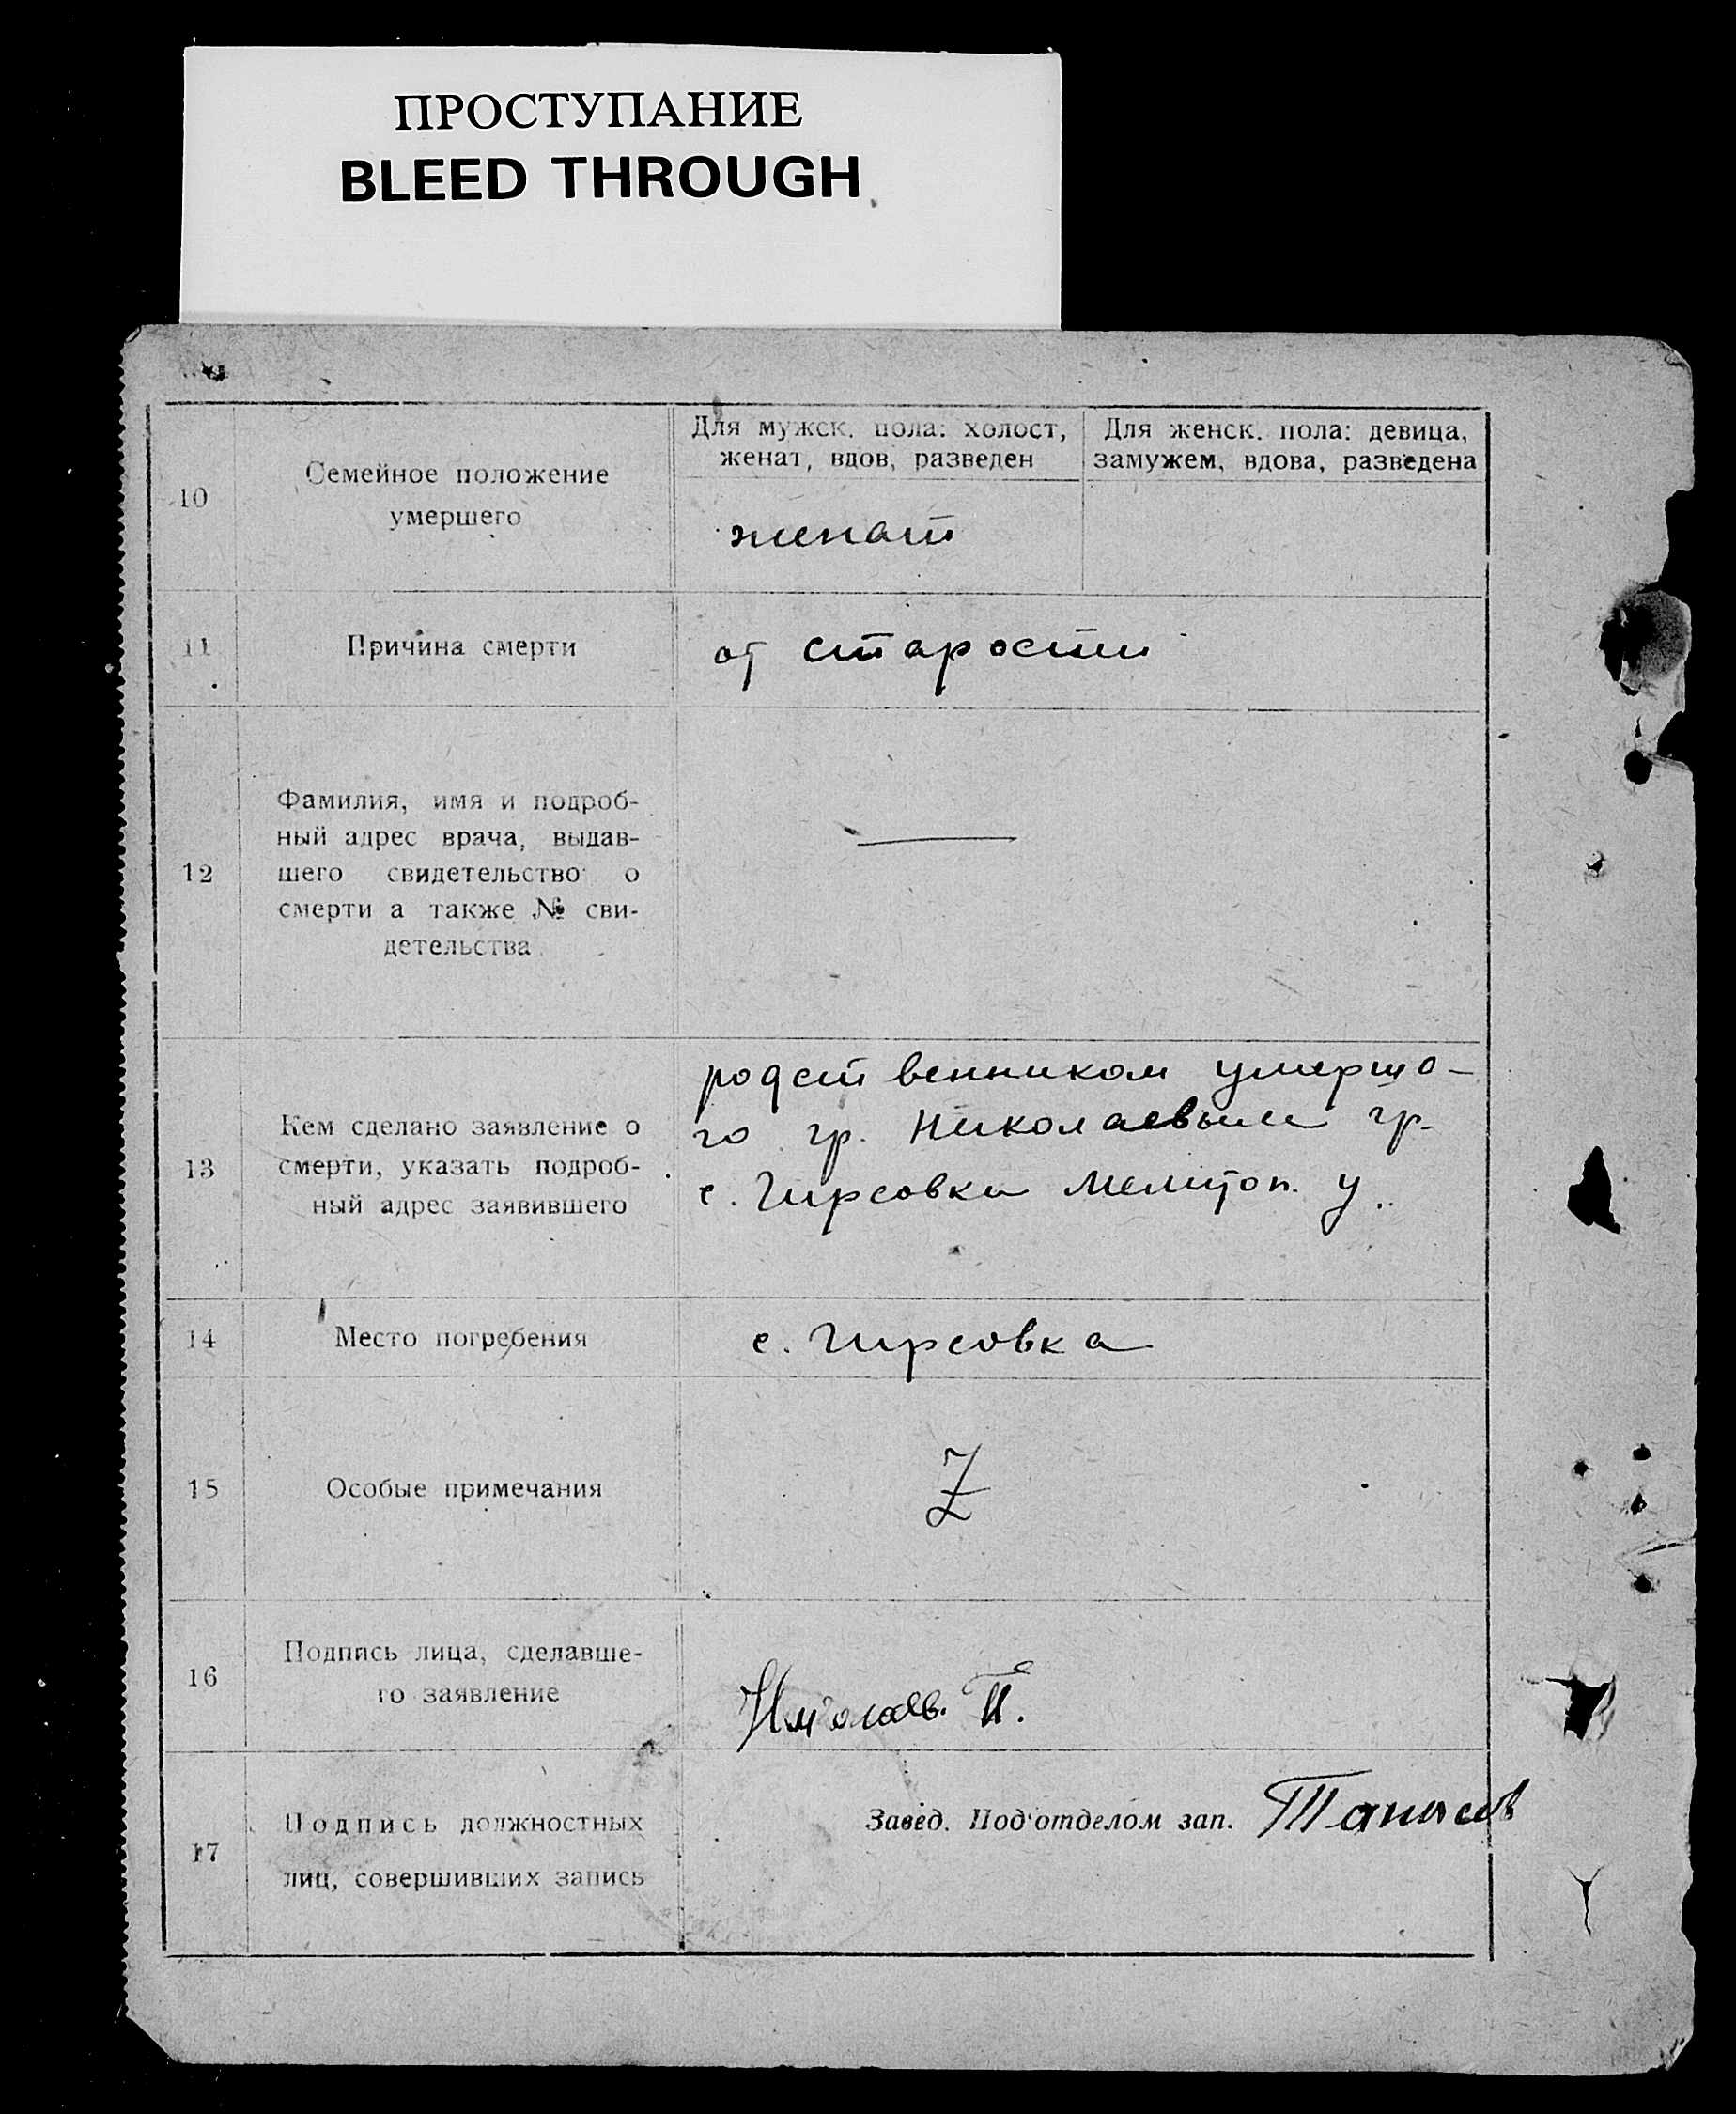 ПРОСТУПАНИЕ
BLEED THROUGH
10
Семейное положение
умершего
Для мужск. пола: холост,
женат, вдов, разведен
Для женск. пола: девица,
замужем, вдова, разведена
женат
11
Причина смерти
от старости
12
Фамилия, имя и подроб-
ный адрес врача, выдав-
шего свидетельство о
смерти а также № сви-
детельства
13
Кем сделано заявление о
смерти, указать подроб-
ный адрес заявившего
родственником умершо-
го гр. Николаевым гр.
с. Гирсовки Мелитоп. у.
14
Место погребения
с. Гирсовка
15
Особые примечания
Z
16
Подпись лица, сделавше-
го заявление
Николаев. П.
17
Подпись должностных
лиц, совершивших запись
Завед. Под'отделом зап.